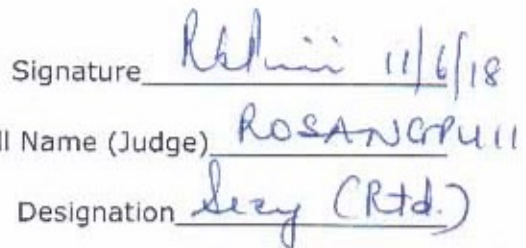 Signature 11/6/18
ll Name (Judge) ROSANGPUII
Designation Secy (Rtd.)